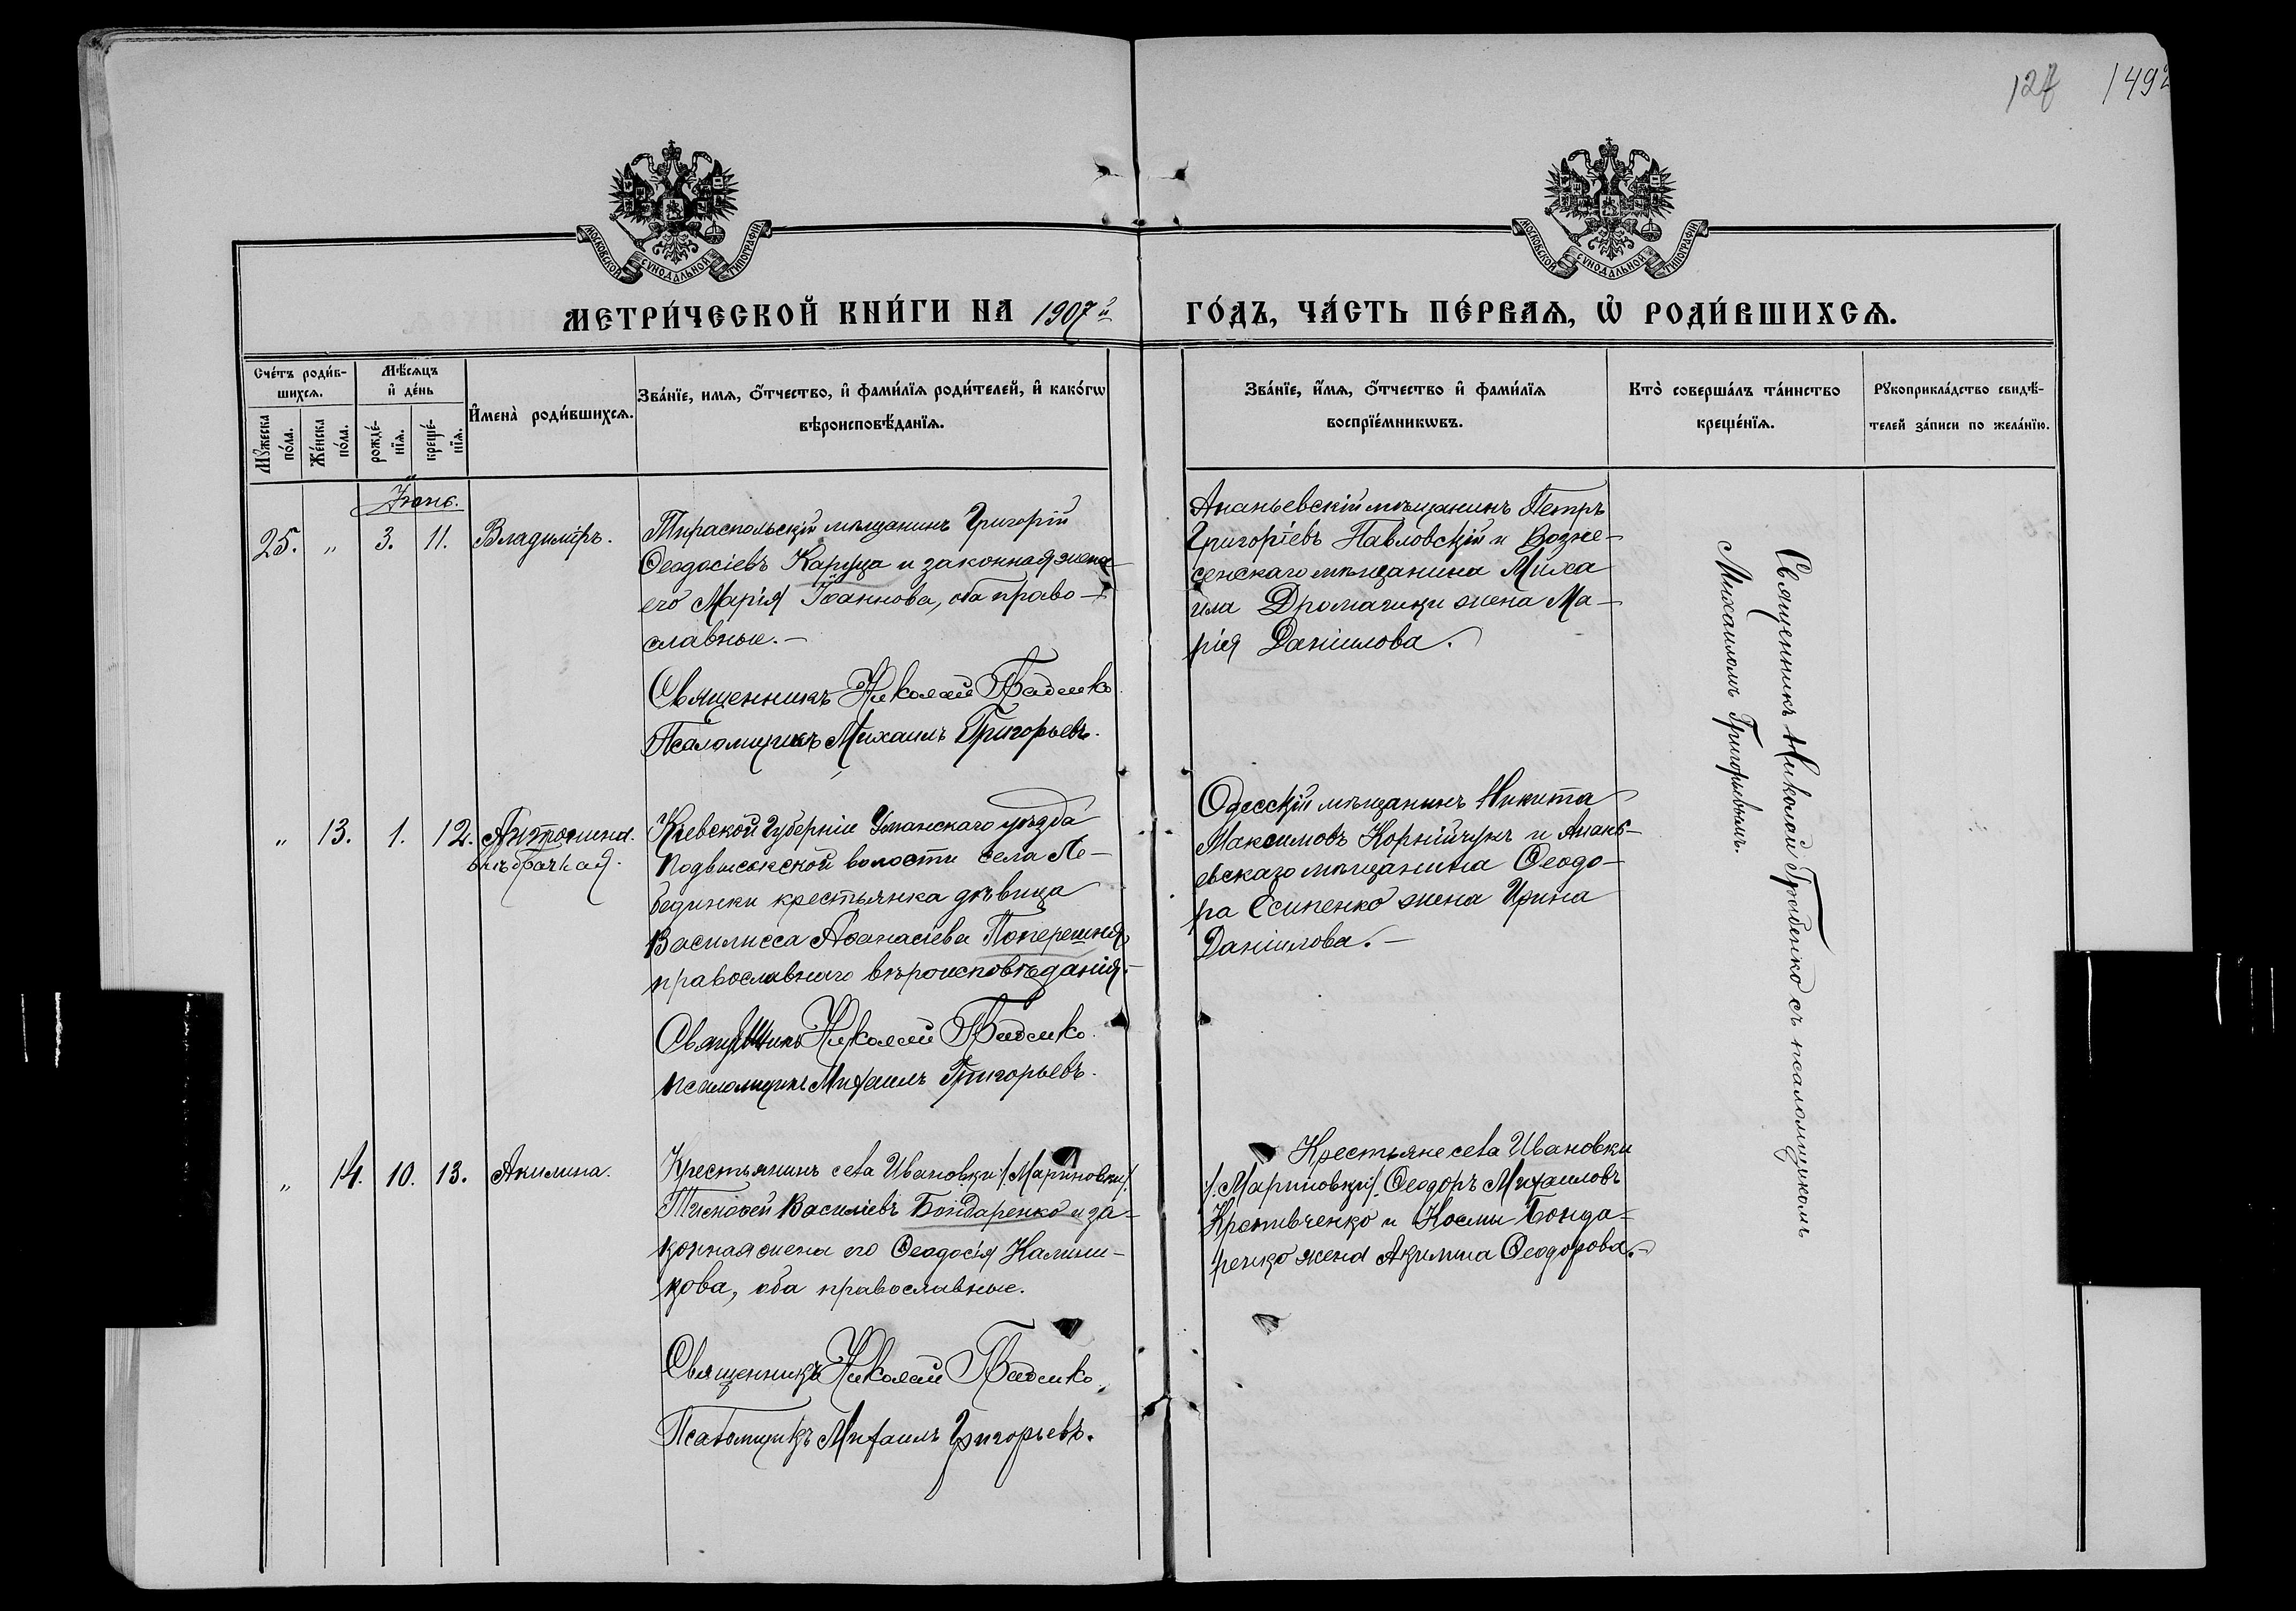 127 1492
МОСКОВСКОЙ СѴНОДАЛЬНОЙ ТИПОГРАФІИ
МОСКОВСКОЙ СѴНОДАЛЬНОЙ ТИПОГРАФІИ
МЕТРИ́ЧЕСКОЙ КНИ́ГИ НА 1907й ГО́ДЪ, ЧА́СТЬ ПЕ́РВАѦ, Ѡ҆ РОДИ́ВШИХСѦ.
Сче́тъ роди́в-
шихсѧ.
Мꙋ́жеска по́ла.
Же́нска по́ла.
Мѣ́сѧцъ
и҆ де́нь
рожде́-
нїѧ.
креще́-
нїѧ.
И҆мена̀ роди́вшихсѧ.
Зва́нїе, имѧ, ѻ҆́тчество, и҆ фами́лїѧ роди́телей, и҆ како́гѡ
вѣроисповѣ́данїѧ.
Зва́нїе, и҆́мѧ, ѻ҆́тчество и҆ фами́лїѧ
воспрїе́мникѡвъ.
Кто̀ соверша́лъ та́инство
креще́нїѧ.
Рꙋкоприкла́дство свидѣ́-
телей за́писи по жела́нїю.
Іюнь.
25. „ 3. 11. Владиміръ.
Тираспольскій мѣщанинъ Григорій
Ѳеодосіевъ Каруца и законная жена
его Марія Іоаннова, оба право-
славные.-
Священникъ Николай
Псаломщикъ Михаилъ Григорьевъ.
Ананьевскій мѣщанинъ Петръ
Григоріевъ Павловскій и Возне-
сенскаго мѣщанина Миха
ила жена Ма-
рія Даніилова.
„ 13. 1. 12. Антонина.
внѣбрачная.
Кіевской Губерніи Уманскаго уѣзда
Подвысокской волости села Ле-
бединки крестьянка дѣвица
Василисса Аѳанасіева Поперешняя
православнаго вѣроисповѣданія.-
Священникъ Николай
псаломщикъ Михаилъ Григорьевъ.
Одесскій мѣщанинъ Никита
Максимовъ Корнійчукъ и Анань-
евскаго мѣщанина Ѳеодо-
ра Есипенко жена Ирина
Даніилова.-
„ 14. 10. 13. Акилина.
Крестьянинъ села Ивановки /Мариновки/
Тимоѳей Василіевъ Бондаренко и за-
конная жена его Ѳеодосія Калини-
кова, оба православные.
Священникъ Николай
Псаломщикъ Михаилъ Григорьевъ.
Крестьяне села Ивановки
/Мариновки/ Ѳеодоръ Михаиловъ
и Космы Бонда-
ренко жена Акилина Ѳеодорова.-
Священникъ Николай съ псаломщикомъ
Михаиломъ Григорьевымъ.